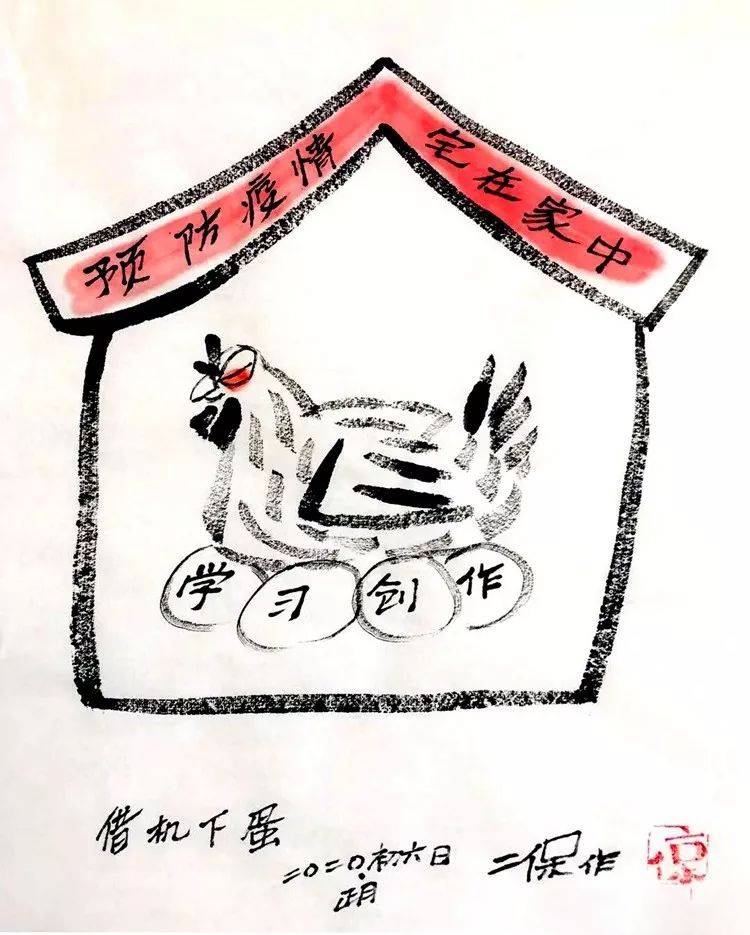 预防疫情
宅在家中
学习创作
借机下蛋
二〇二〇初六日
正月
二保作